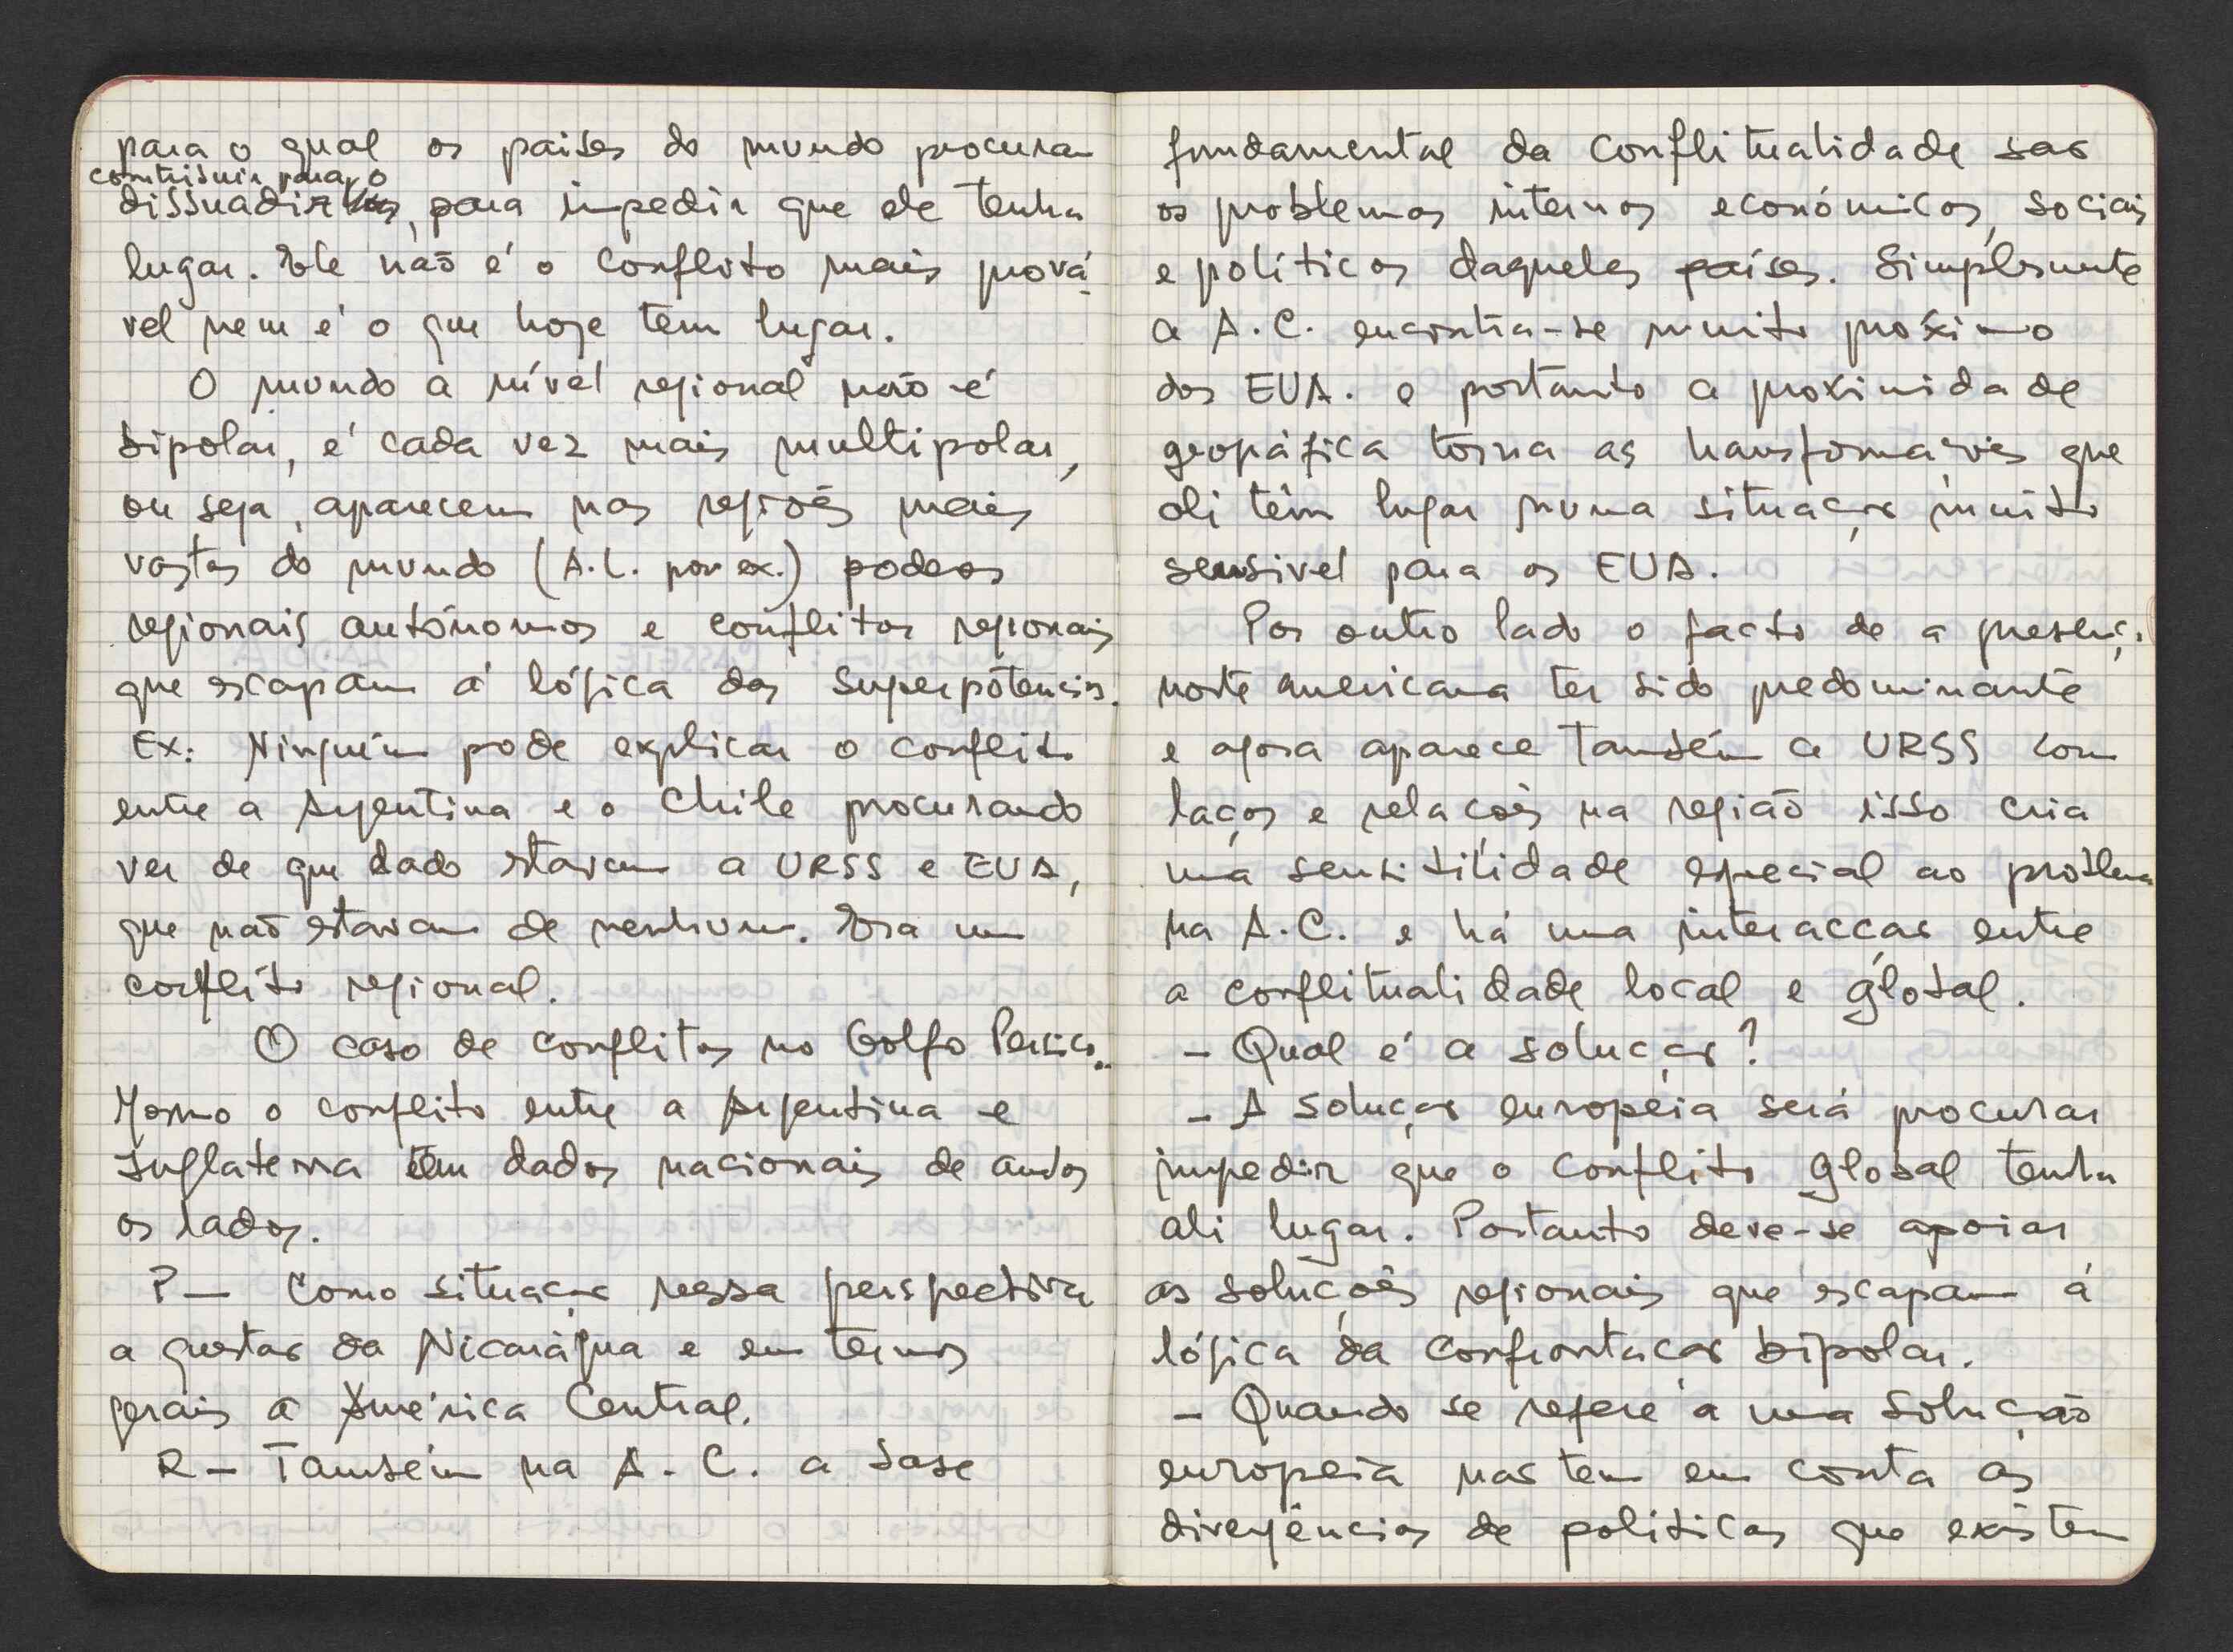 para o qual os paises do mundo procuram
contribuir para o
dissuadir, para impedir que ele tenha
lugar. Ele não é o conflito mais prová-
vel nem é o que hoje tem lugar.
O mundo a nível regional não é
bipolar, é cada vez mais multipolar,
ou seja, aparecem nas regiões mais
vastas do mundo (A.L. por ex.) poderes
regionais autónomos e conflitos regionais
que escapam á lógica das Superpotencias.
Ex: Ninguém pode explicar o conflito
entre a Argentina e o Chile procurando
ver de que lado estavam a URSS e EUA,
que não estavam de nenhum. Era um
conflito regional.
O caso de conflitos no Golfo Persico..
Mesmo o conflito entre a Argentina e
Inglaterra tem dados nacionais de ambos
os lados.
P — Como situação nessa perspectiva
a questão da Nicarágua e em termos
gerais a América Central.
R — Também na A. C. a base
fundamental da conflitualidade são
os problemas internos económicos, sociais
e políticos daqueles países. Simplesmente
a A.C. encontra-se muito próximo
dos EUA. e portanto a proximidade
geográfica torna as transformações que
ali têm lugar numa situação muito
sensivel para os EUA.
Por outro lado o facto de a presença
norte americana ter sido predominante
e agora aparece também a URSS com
laços e relações na região isso cria
uma sensibilidade especial ao problema
na A.C. e há uma interacção entre
a conflitualidade local e global.
— Qual é a solução?
— A solução europeia será procurar
impedir que o conflito global tenha
ali lugar. Portanto deve-se apoiar
as soluções regionais que escapam á
lógica da confrontação bipolar.
— Quando se refere a uma solução
europeia não tem em conta as
divergências de politicas que existem